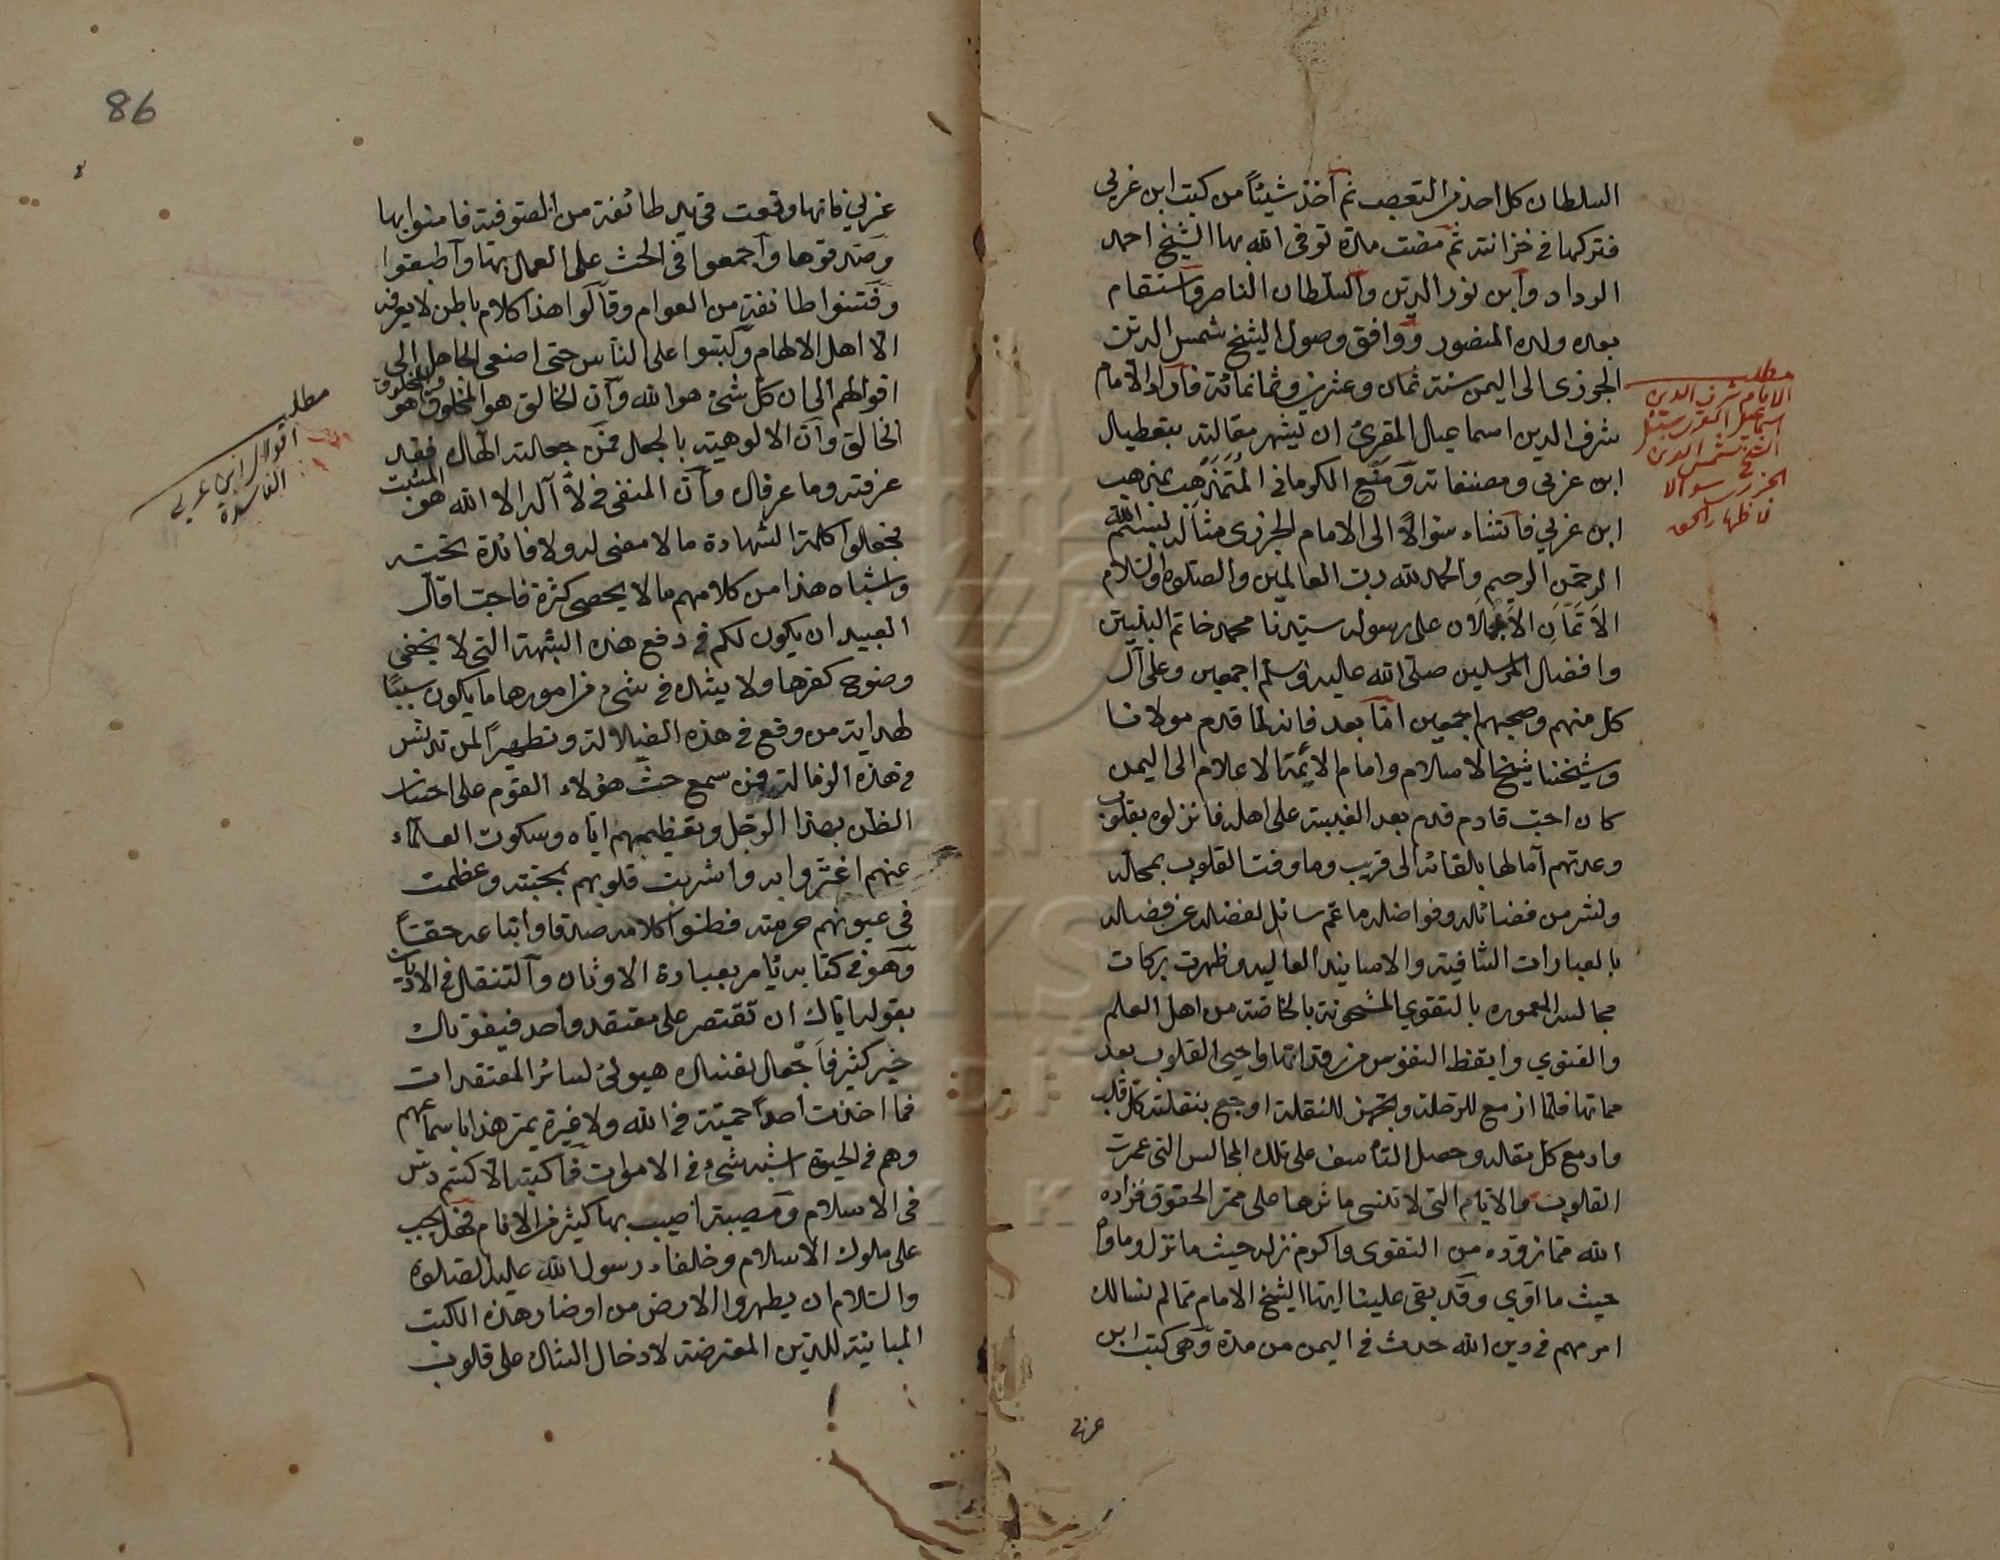 السلطان كل احذ من التعصب ثم أخذ شيئاً من كتب ابن عربي
فتركها في خزانته ثم مضت مدة توفى الله بها الشيخ احمد
الرداد وابن نور الدين والسلطان الناصر واستقام
بعده ولده المنصور ووافق وصول الشيخ شمس الدين
الجزري الى اليمن سنة ثمان وعشرين وثمانمائة فأراد الامام
شرف الدين اسماعيل المقرئ ان يشهر مقالته بتعطيل
ابن عربي ومصنفاته وقمع الكرماني المتمذهب بمذهب
ابن عربي فانشاء سؤالاً الى الامام الجزري مثاله بسم الله
الرحمن الرحيم والحمد لله رب العالمين والصلوة والسلام
الاتمّان الاكملان على رسوله سيدنا محمد خاتم النبيين
وافضل المرسلين صلى الله عليه وسلم اجمعين وعلى آل
كل منهم وصحبهم اجمعين امّا بعد فانه لما قدم مولانا
وشيخنا شيخ الاسلام وامام الأئمة الاعلام الى اليمن
كان احب قادم قدم بعد الغيبة على اهله فانزلوه بقلوب
وعدتهم آمالها بالقائه الى قريب وما وفت القلوب بمحاله
ونشر من فضائله وفواضله ما عم سائل لفضله عن فضله
بالعبارات الشافية والاسانيد العالية وظهرت بركات
مجالسه المعمورة بالتقوي المشحونة بالخاصة من اهل العلم
والفتوي وايقظ النفوس من رقداتها واحيي القلوب بعد
مماتها فلما ازمع للرحلة وتجهز للنقلة اوجع بنقلته كل قلب
وادمع كل مقلة وحصل التأسف على تلك المجالس التي عمرت
القلوب والايام التي لا تنسى مآثرها على ممر الحقوق فزاده
الله مما تزوده من التقوى واكرم نزله حيث ما نزل ومأواه
حيث ما أوي وقد بقي علينا ايها الشيخ الامام مما لم نسالك
امر مهم في دين الله حدث في اليمن من مدة وهي كتب ابن
عربي
مطلب
الامام شرف الدين
اسماعيل المقري
الشيخ شمس الدين
الجزري سوالا
لاظهار الحق
86
عربي فانها وقعت في يد طائفة من الصوفية فامنوا بها
وصدقوها وأجمعوا في الحث على العمل بها وأطبقوا
وفتنوا طائفة من العوام وقالوا هذا كلام باطن لا يعرفه
الا اهل الالهام وكبتوا على الناس حتى اصغى الجاهل الى
اقوالهم الى ان كل شئ هو الله وأن الخالق هو المخلوق والمخلوق هو
الخالق وأن الالوهية بالجعل فمن جعلته الهاك فقد
عرفته وما عرفك وأن المنفى في لا آله الا الله هو المثبت
فجعلوا كلمة الشهادة ما لا معنى له ولا فائدة تحته
واشباه هذا من كلامهم ما لا يحصى كثرة فاحب اقل
العبيد ان يكون لكم في دفع هذه الشبهة التي لا يخفي
وضوح كفرها ولا يشك في شئ من امورها ما يكون سبباً
لهداية من وقع في هذه الضلالة وتطهيراً لمن تدنس
في هذه الرذالة فمن سمع حث هؤلاء القوم على احسان
الظن بهذا الرجل وتعظيمهم اياه وسكوت العلماء
عنهم اغتروا به واشربت قلوبهم بمحبته وعظمت
في عيونهم حرمته فظنوا كلامه صدقا واتباعه حقاً
وهو في كتابه يأمر بعبادة الاوثان والتنقل في الاديان
بقوله اياك ان تقتصر على معتقد واحد فيفوتك
خير كثير فاجعل نفسك هيولئ لسائر المعتقدات
فما اخذت أحداً حمية في الله ولا غيرة يمر هذا باسماعهم
وهم في الحيوة اشبه شئ في الاموات فما كتبه الا كتم دس
في الاسلام ومصيبة أصيب بها كثير من الانام فهل يجب
على ملوك الاسلام وخلفاء رسول الله عليه الصلوة
والسلام ان يطهروا الارض من اوضار هذه الكتب
المباينة للدين المعترضة لادخال الشك على قلوب
مطلب
اقوال ابن عربي
الفاسدة